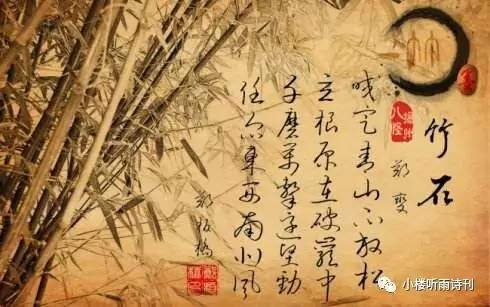 竹石
郑燮
扬州八怪
咬定青山不放松
立根原在破巖中
千磨萬擊还坚劲
任尔東西南北风
郑板桥
小楼听雨诗刊